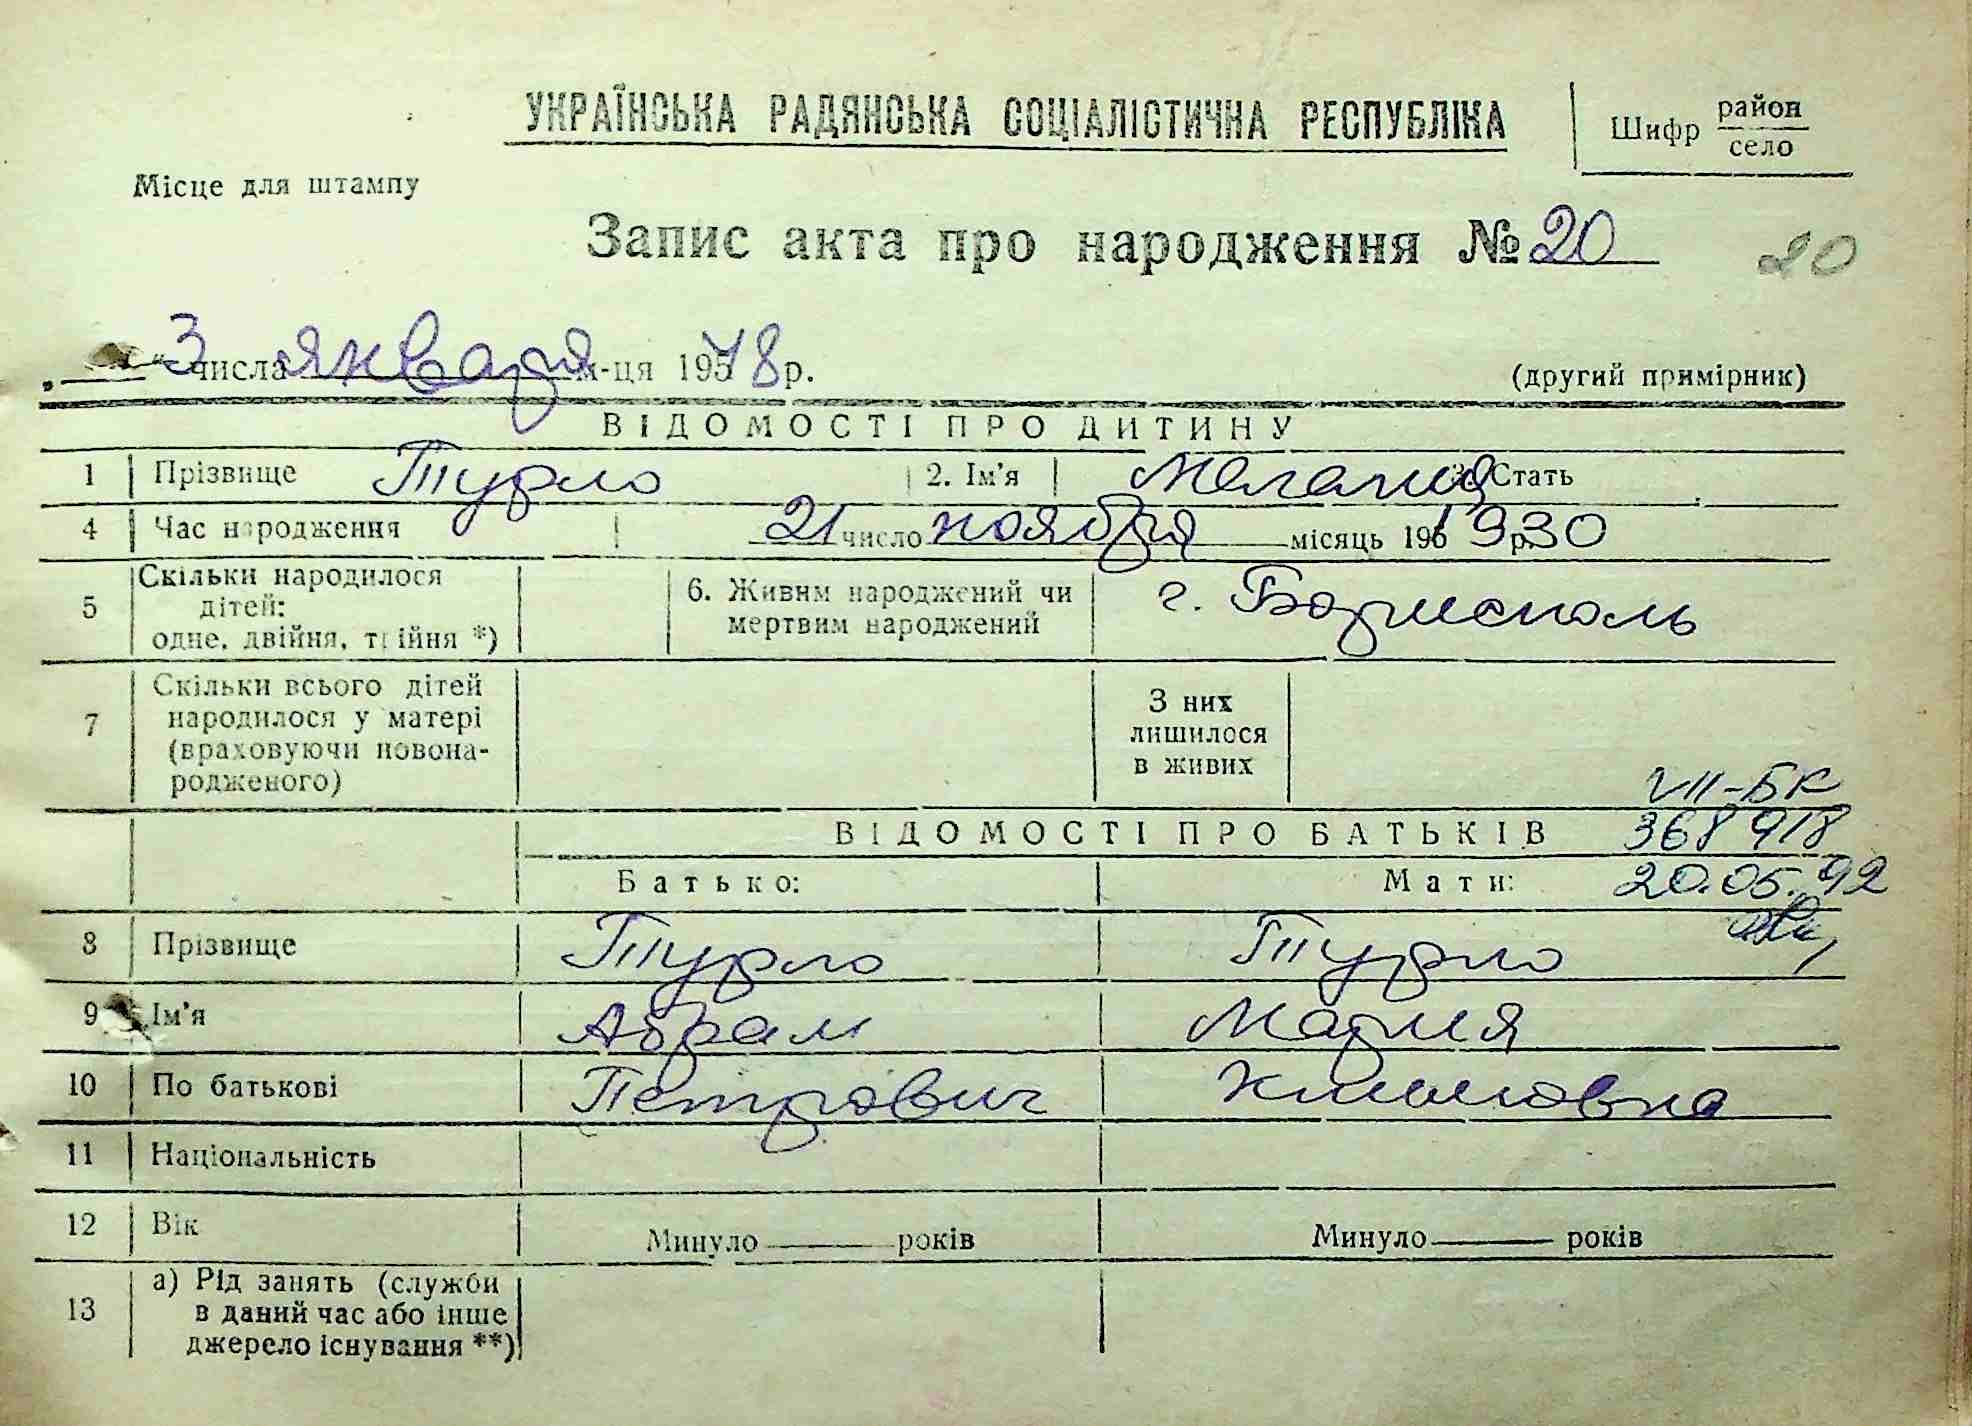 УКРАЇНСЬКА РАДЯНСЬКА СОЦІАЛІСТИЧНА РЕСПУБЛІКА
Шифр район
село
Місце для штампу
Запис акта про народження № 20
20
„ “ 3 числа января м-ця 1978 р.
(другий примірник)
ВІДОМОСТІ ПРО ДИТИНУ
1 Прізвище Турло 2. Ім'я Мелания 3. Стать
4 Час народження 21 число ноября місяць 196 1930 р.
5 Скільки народилося дітей: одне, двійня, трійня *) 6. Живим народжений чи мертвим народжений г. Борисполь
7 Скільки всього дітей народилося у матері (враховуючи новонародженого) З них лишилося в живих
VII-БК
368918
20.05.92
ВІДОМОСТІ ПРО БАТЬКІВ
Батько: Мати:
8 Прізвище Турло Турло
9 Ім'я Абрам Мария
10 По батькові Петрович Климовна
11 Національність
12 Вік Минуло років Минуло років
13 а) Рід занять (служби в даний час або інше джерело існування **)